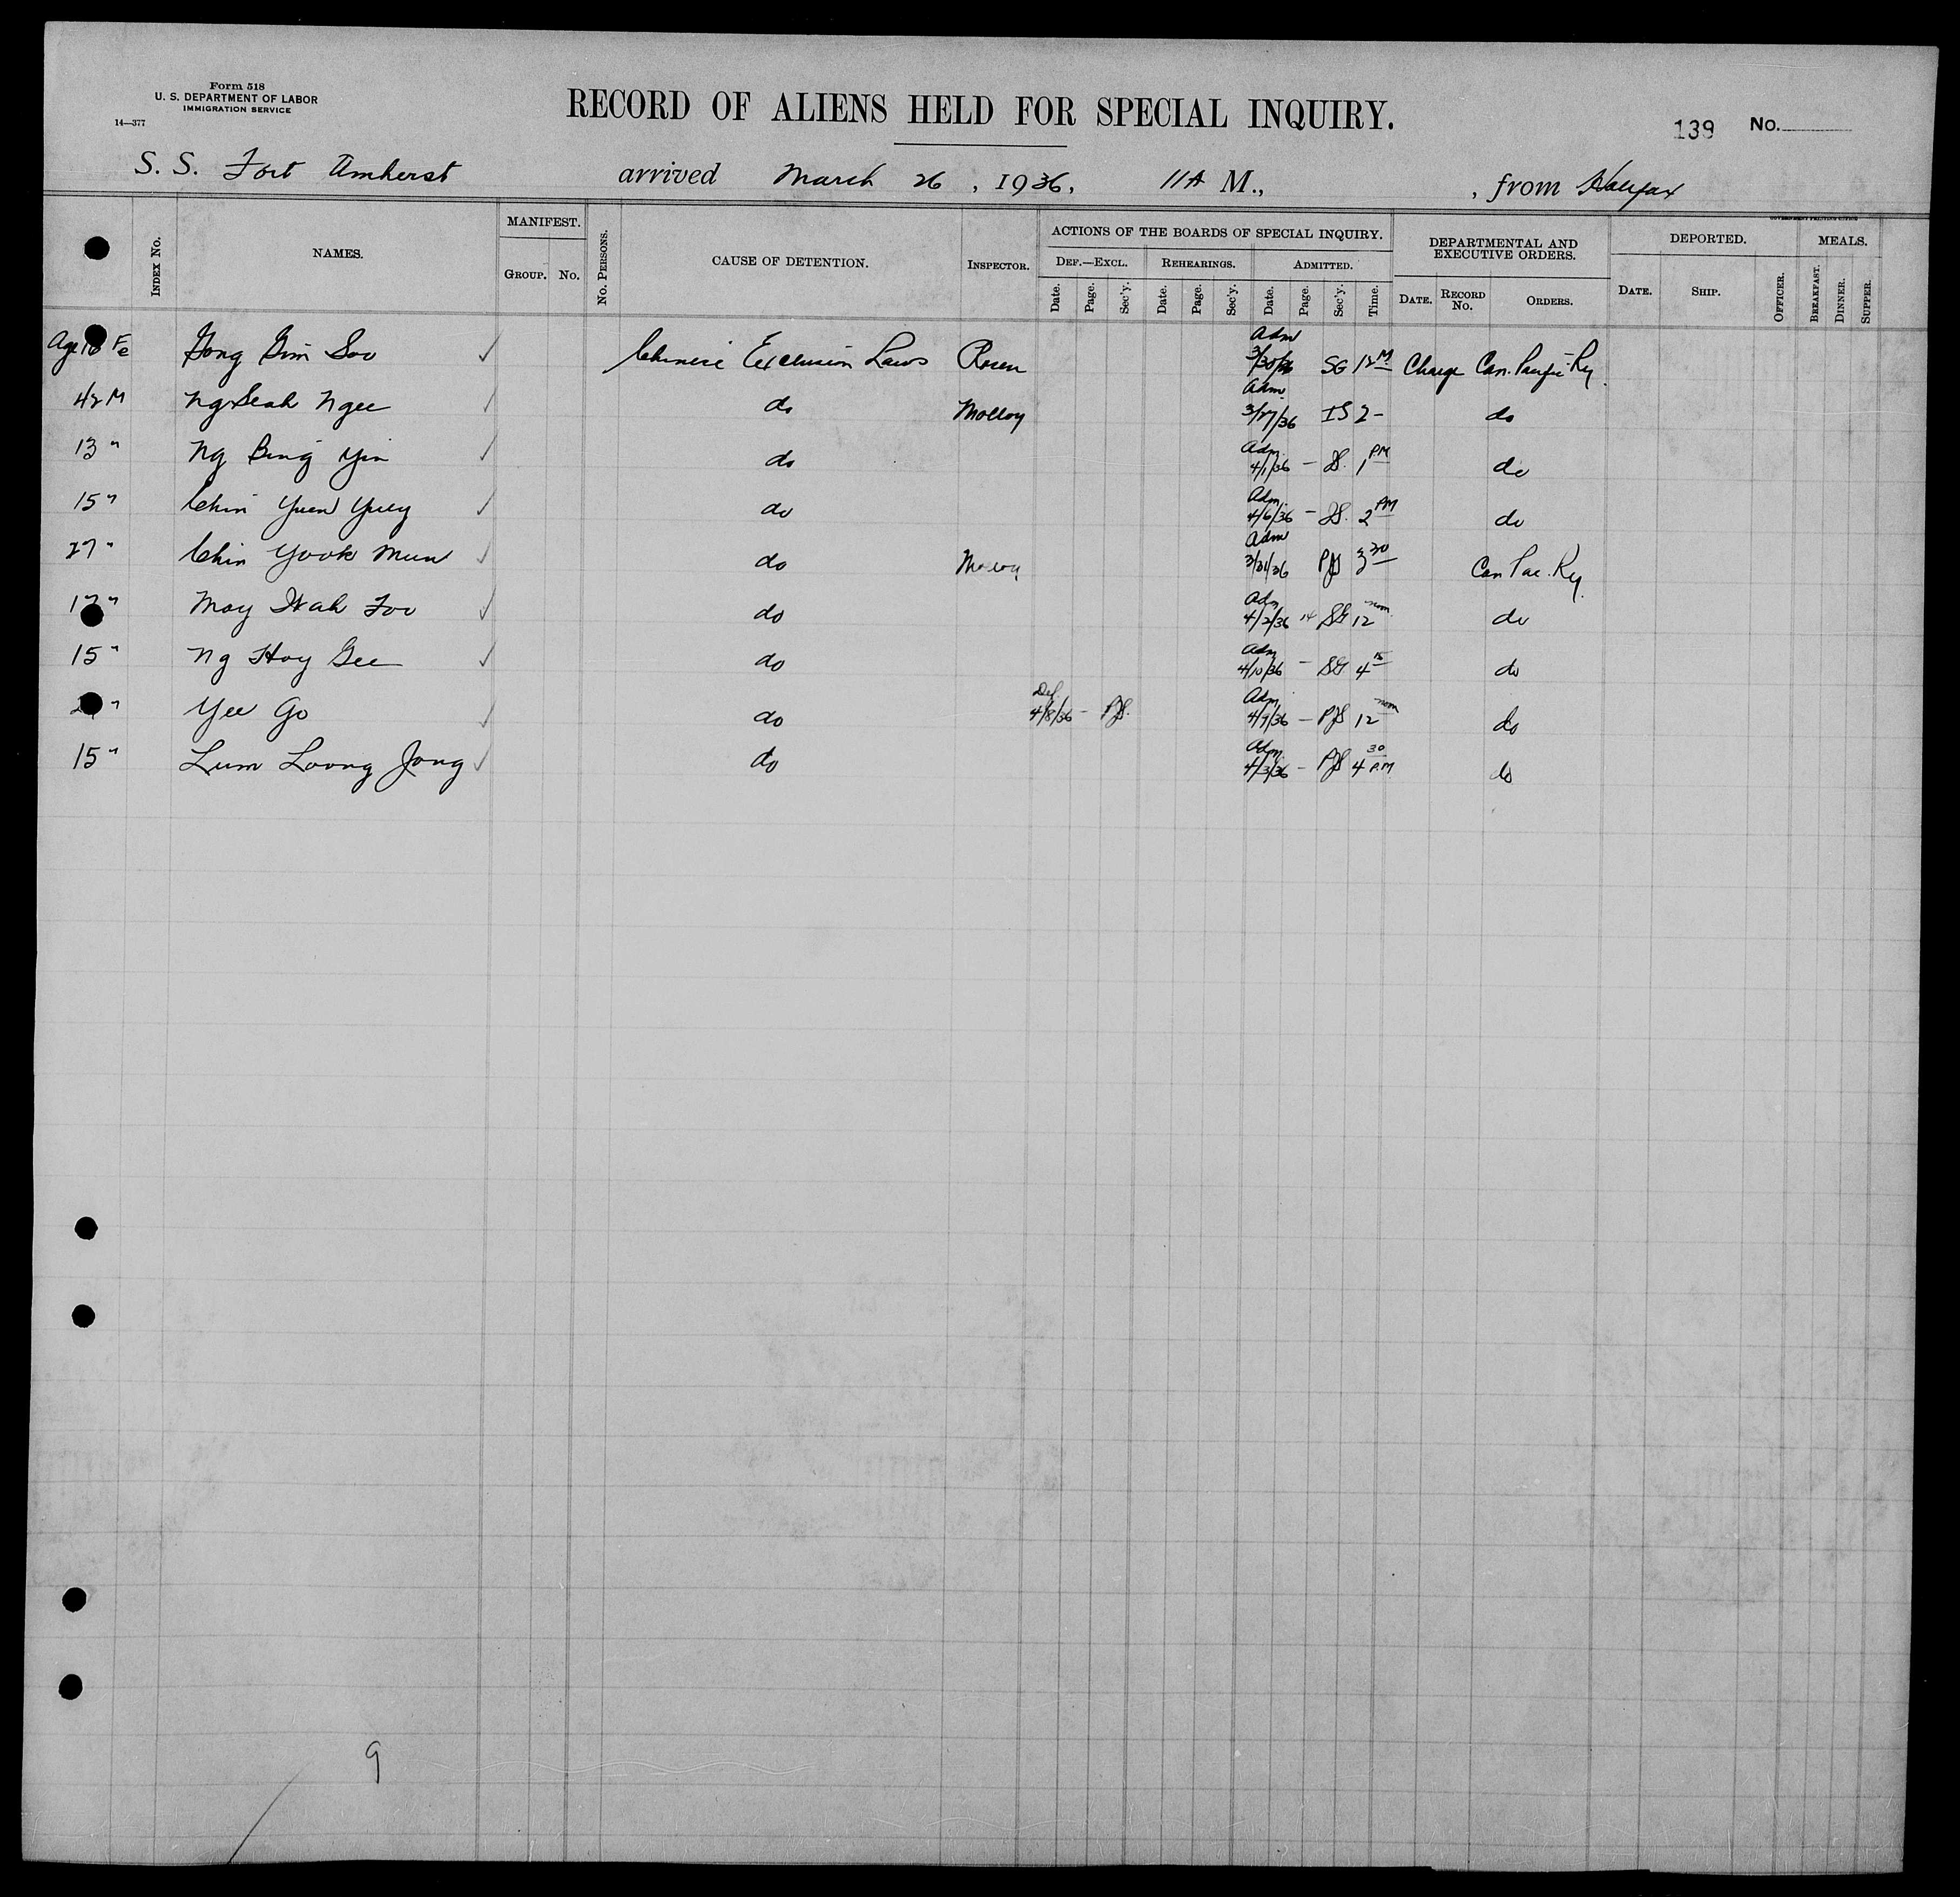 Form 518
U. S. DEPARTMENT OF LABOR
IMMIGRATION SERVICE
14—377
RECORD OF ALIENS HELD FOR SPECIAL INQUIRY.
139 No.
S. S. Fort Amherst arrived March 26, 1936, 11 A M., , from Halifax
GOVERNMENT PRINTING OFFICE
INDEX No. NAMES. MANIFEST. GROUP. No. No. PERSONS. CAUSE OF DETENTION. INSPECTOR. ACTIONS OF THE BOARDS OF SPECIAL INQUIRY. DEPARTMENTAL AND EXECUTIVE ORDERS. DEPORTED. MEALS.
DEF.—EXCL. REHEARINGS. ADMITTED.
Date. Page. Sec'y. Date. Page. Sec'y. Date. Page. Sec'y. Time. DATE. RECORD No. ORDERS. DATE. SHIP. OFFICER. BREAKFAST. DINNER. SUPPER.
Age Fe Gong Gim Soo ✓ Chinese Exclusion Laws Rosen Adm 3/30/36 SG 12 M Charge Can. Pacific Ry.
42 M Ng Seah Ngee ✓ do Molloy Adm. 3/27/36 IS 2 - do
13 " Ng Bing Yin ✓ do Adm. 4/1/36 - 1 PM do
15 " Chin Yuen Yuey ✓ do Adm. 4/6/36 - 2 PM do
27 " Chin Yook Mun ✓ do Molloy Adm 3/31/36 PJS 3 30 Can Pac. Ry.
" Moy Wah Foo ✓ do Adm 4/2/36 14 SG 12 noon do
15 " Ng Hoy Gee ✓ do Adm 4/10/36 - SG 4 15 do
" Yee Go ✓ do Def. 4/8/36 - PJS. Adm. 4/9/36 - PJS 12 noon do
15 " Lum Loong Jong ✓ do Adm. 4/3/36 - PJS 4 30 P.M. do
9